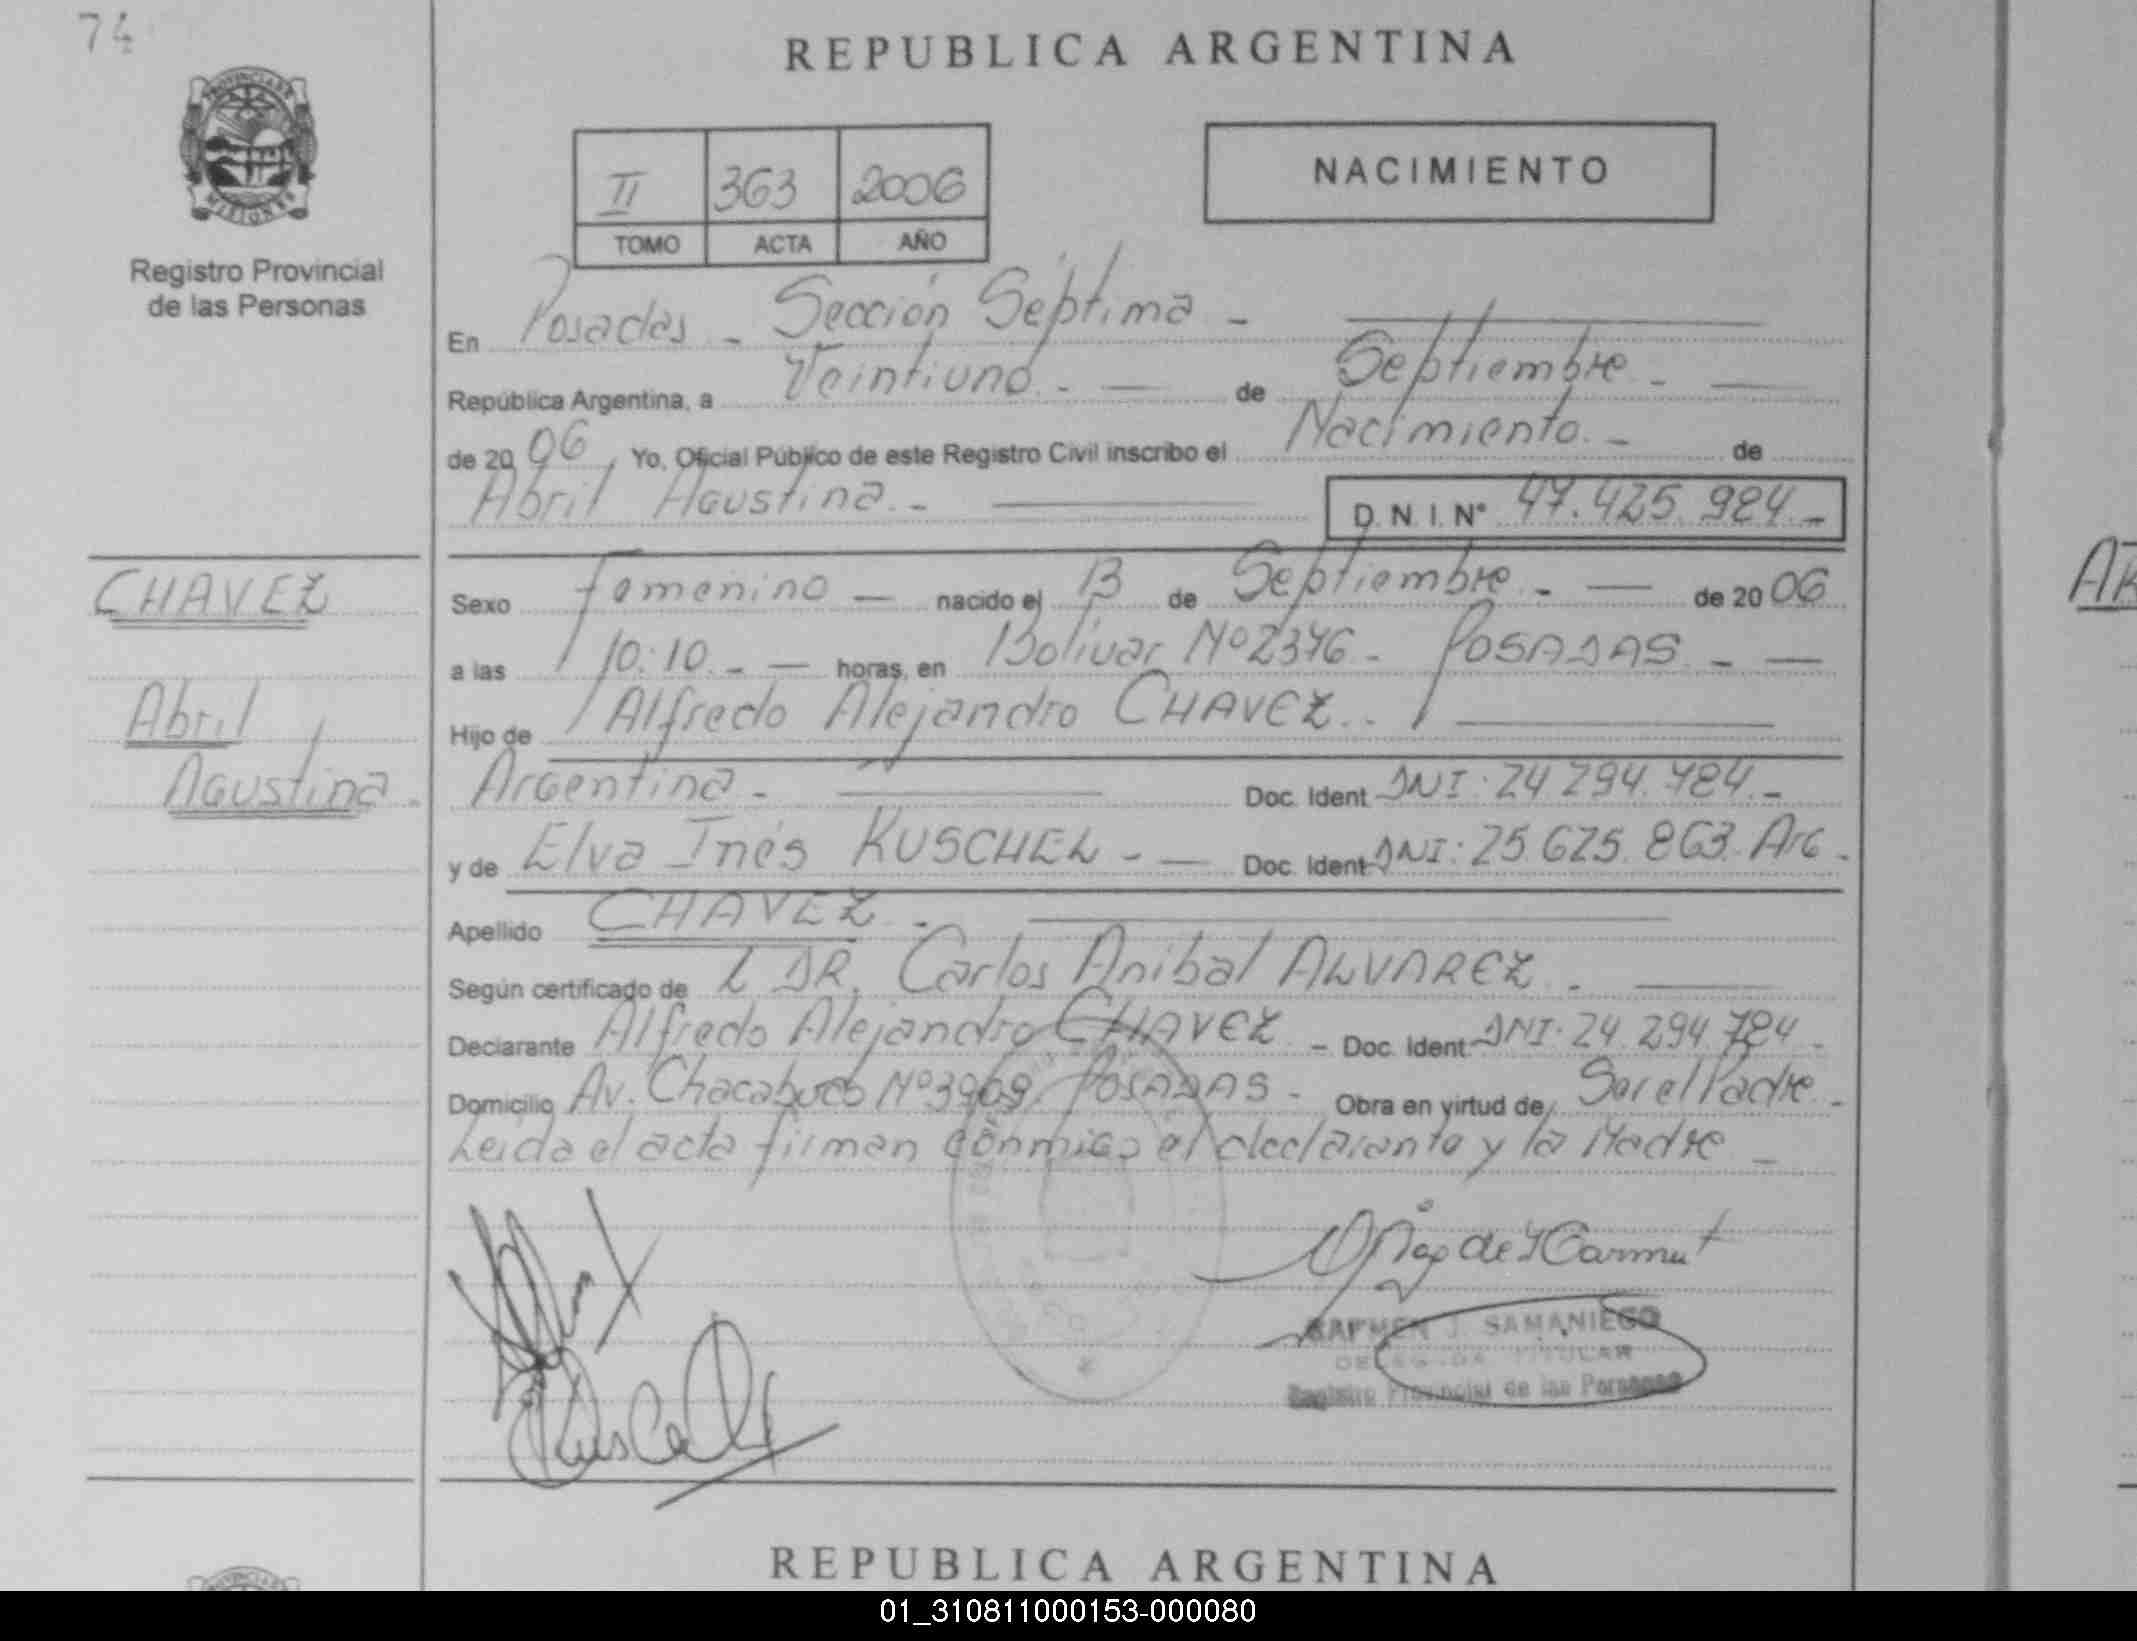 74
PROVINCIA DE
MISIONES
Registro Provincial
de las Personas
CHAVEZ
Abril
Agustina.
REPUBLICA ARGENTINA
II 363 2006
TOMO ACTA AÑO
NACIMIENTO
En Posadas - Sección Séptima -
República Argentina, a Veintiuno. - de Septiembre -
de 2006, Yo, Oficial Público de este Registro Civil inscribo el Nacimiento. - de
Abril Agustina. - D.N.I. Nº 47.425.984.-
Sexo femenino - nacido el 13 de Septiembre. - de 2006
a las 10:10. - horas, en Bolívar Nº 2376 - POSADAS - -
Hijo de Alfredo Alejandro CHAVEZ..
Argentina - Doc. Ident. DNI: 24.294.784.-
y de Elva Inés KUSCHEL - - Doc. Ident. DNI: 25.625.863. Arg -
Apellido CHAVEZ -
Según certificado de L DR. Carlos Anibal ALVAREZ -
Declarante Alfredo Alejandro CHAVEZ - Doc. Ident. DNI: 24.294.784 -
Domicilio Av. Chacabuco Nº 3969, POSADAS - Obra en virtud de Ser el Padre -
Leida el acta firman conmigo el declarante y la Madre -
CARMEN J. SAMANIEGO
DELEGADA TITULAR
Registro Provincial de las Personas
REPUBLICA ARGENTINA
01_310811000153-000080